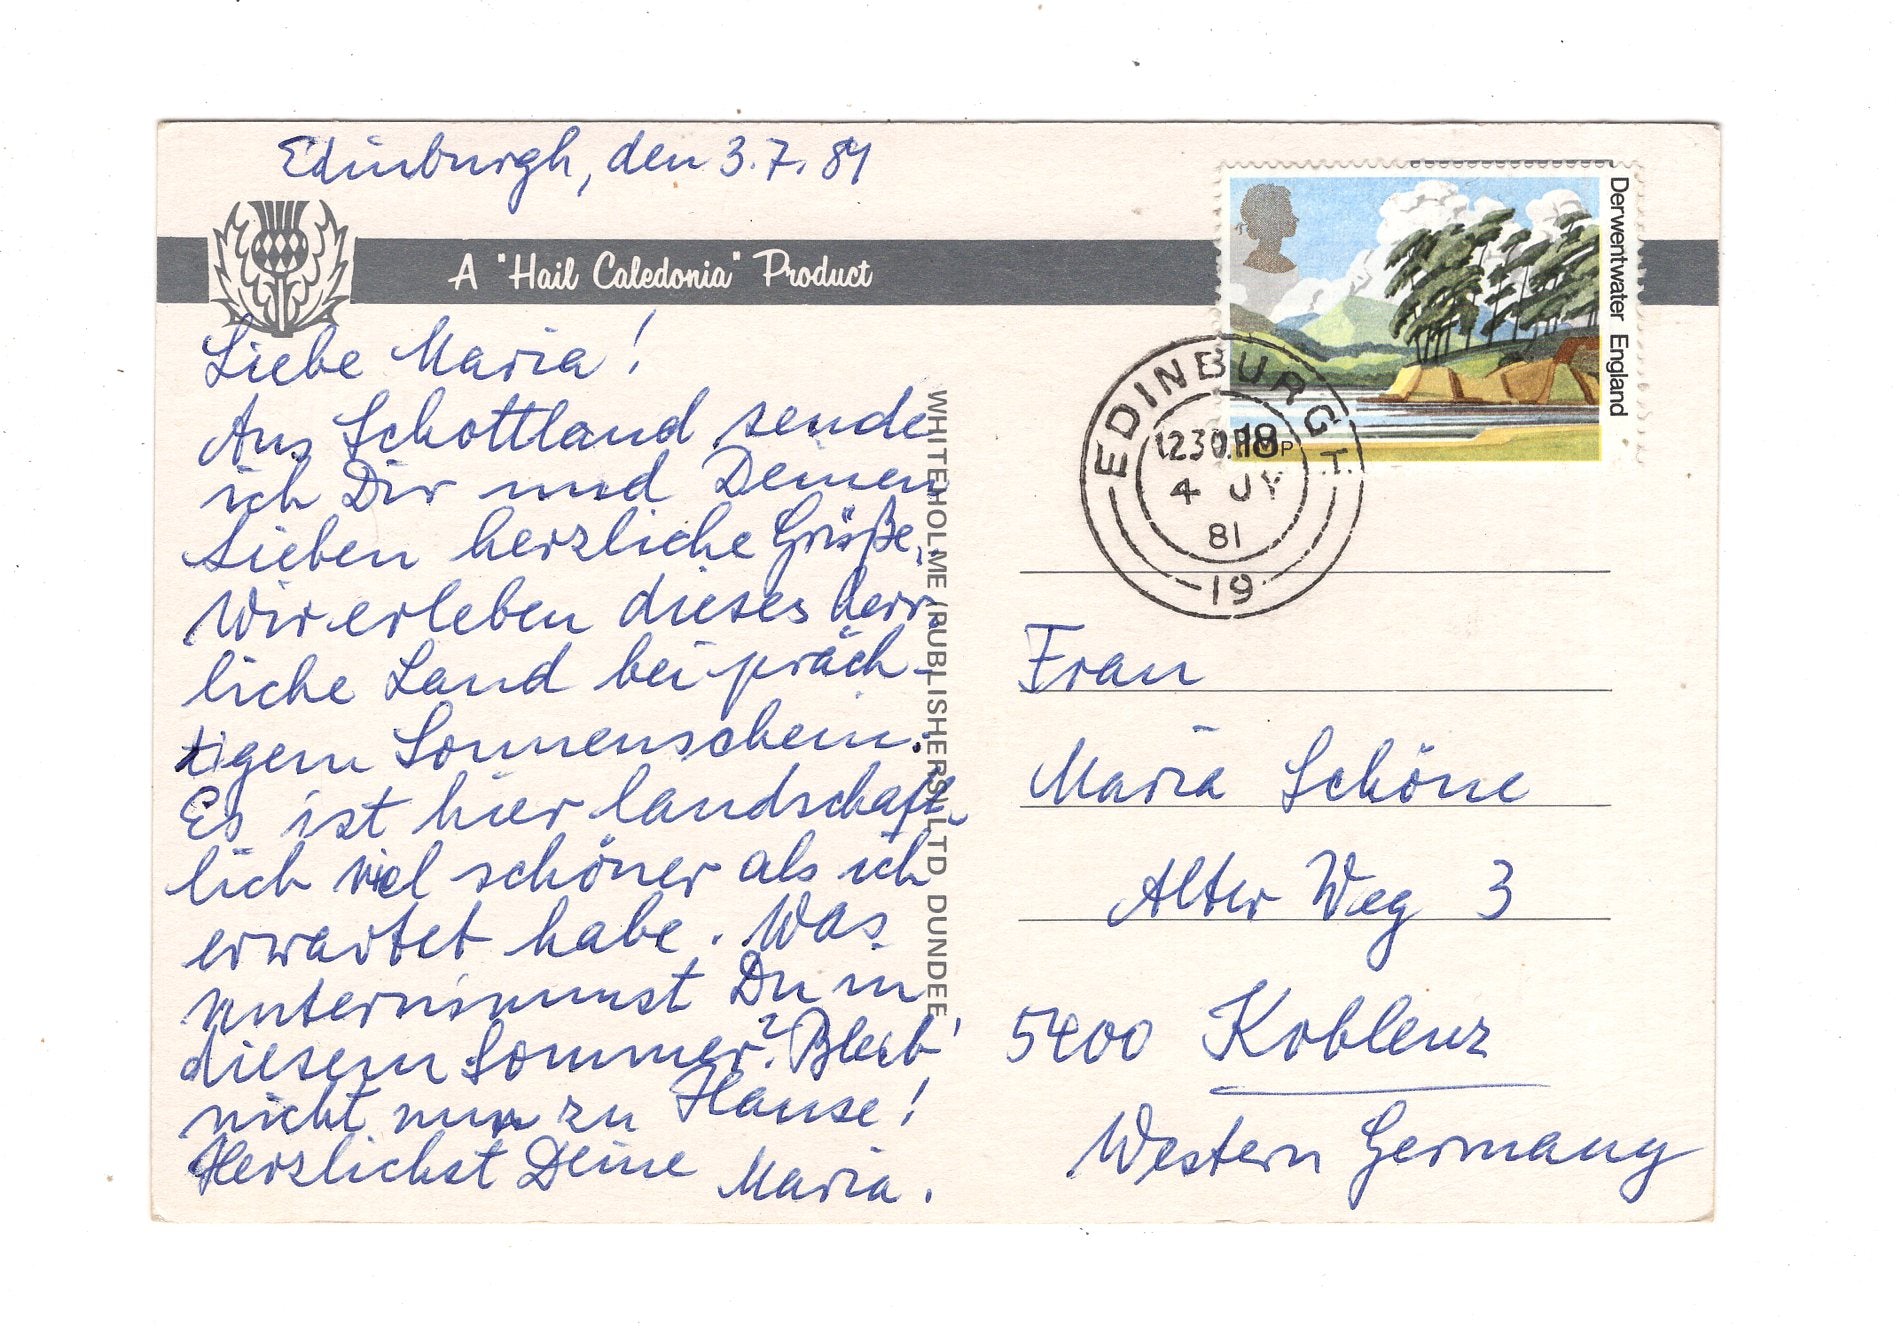 Edinburgh, den 3.7.81
A "Hail Caledonia" Product
Liebe Maria!
Aus Schottland sende
ich Dir und Deinen
Lieben herzliche Grüße.
Wir erleben dieses herr-
liche Land bei präch-
tigem Sonnenschein.
Es ist hier landschaft-
lich viel schöner als ich
erwartet habe. Was
unternimmst Du in
diesem Sommer? Bleib'
nicht nur zu Hause!
Herzlichst Deine Maria.
WHITEHOLME (PUBLISHERS) LTD DUNDEE
Derwentwater England
18p
EDINBURGH
12 30 PM
4 JY
81
19
Frau
Maria Schöne
Alter Weg 3
5400 Koblenz
Western Germany